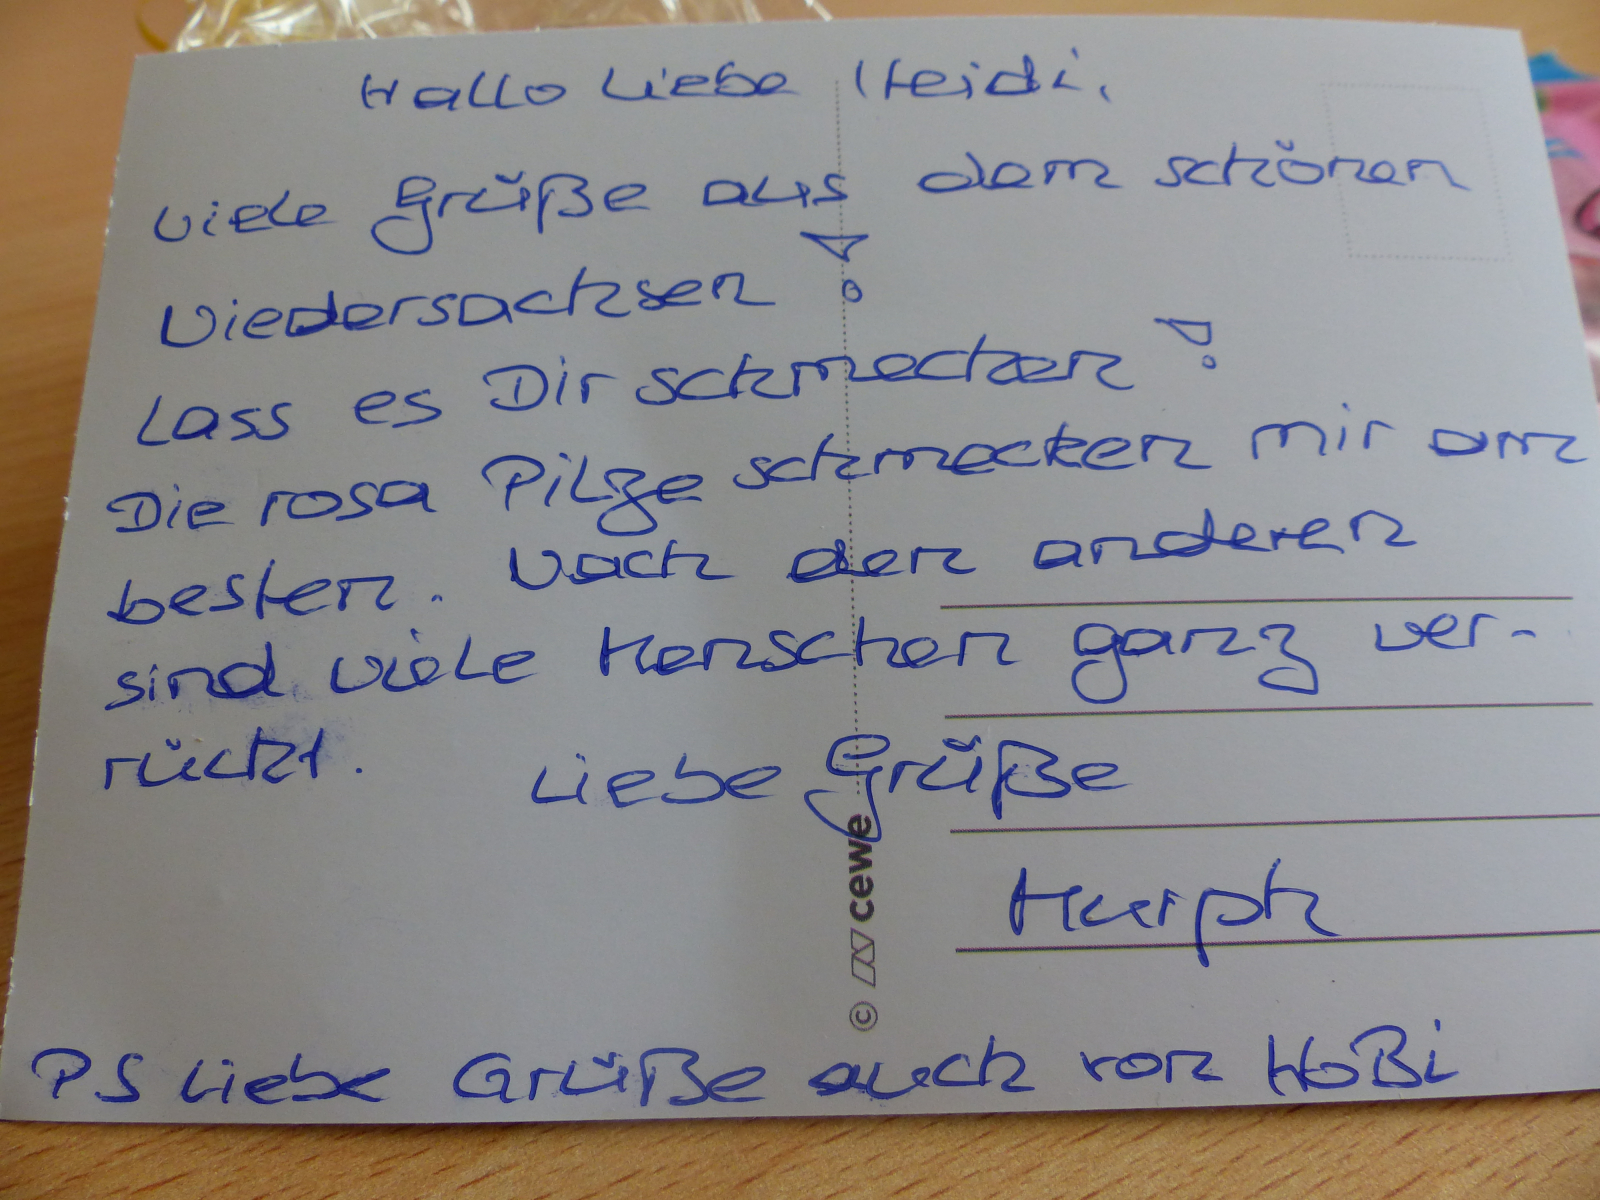 Hallo Liebe Heidi,
viele Grüße aus dem schönen
Niedersachsen!
Lass es Dir schmecken!
Die rosa Pilze schmecken mir am
besten. Nach den anderen
sind viele Menschen ganz ver-
rückt.
Liebe Grüße
Murph
PS Liebe Grüße auch von HoBi
© cewe